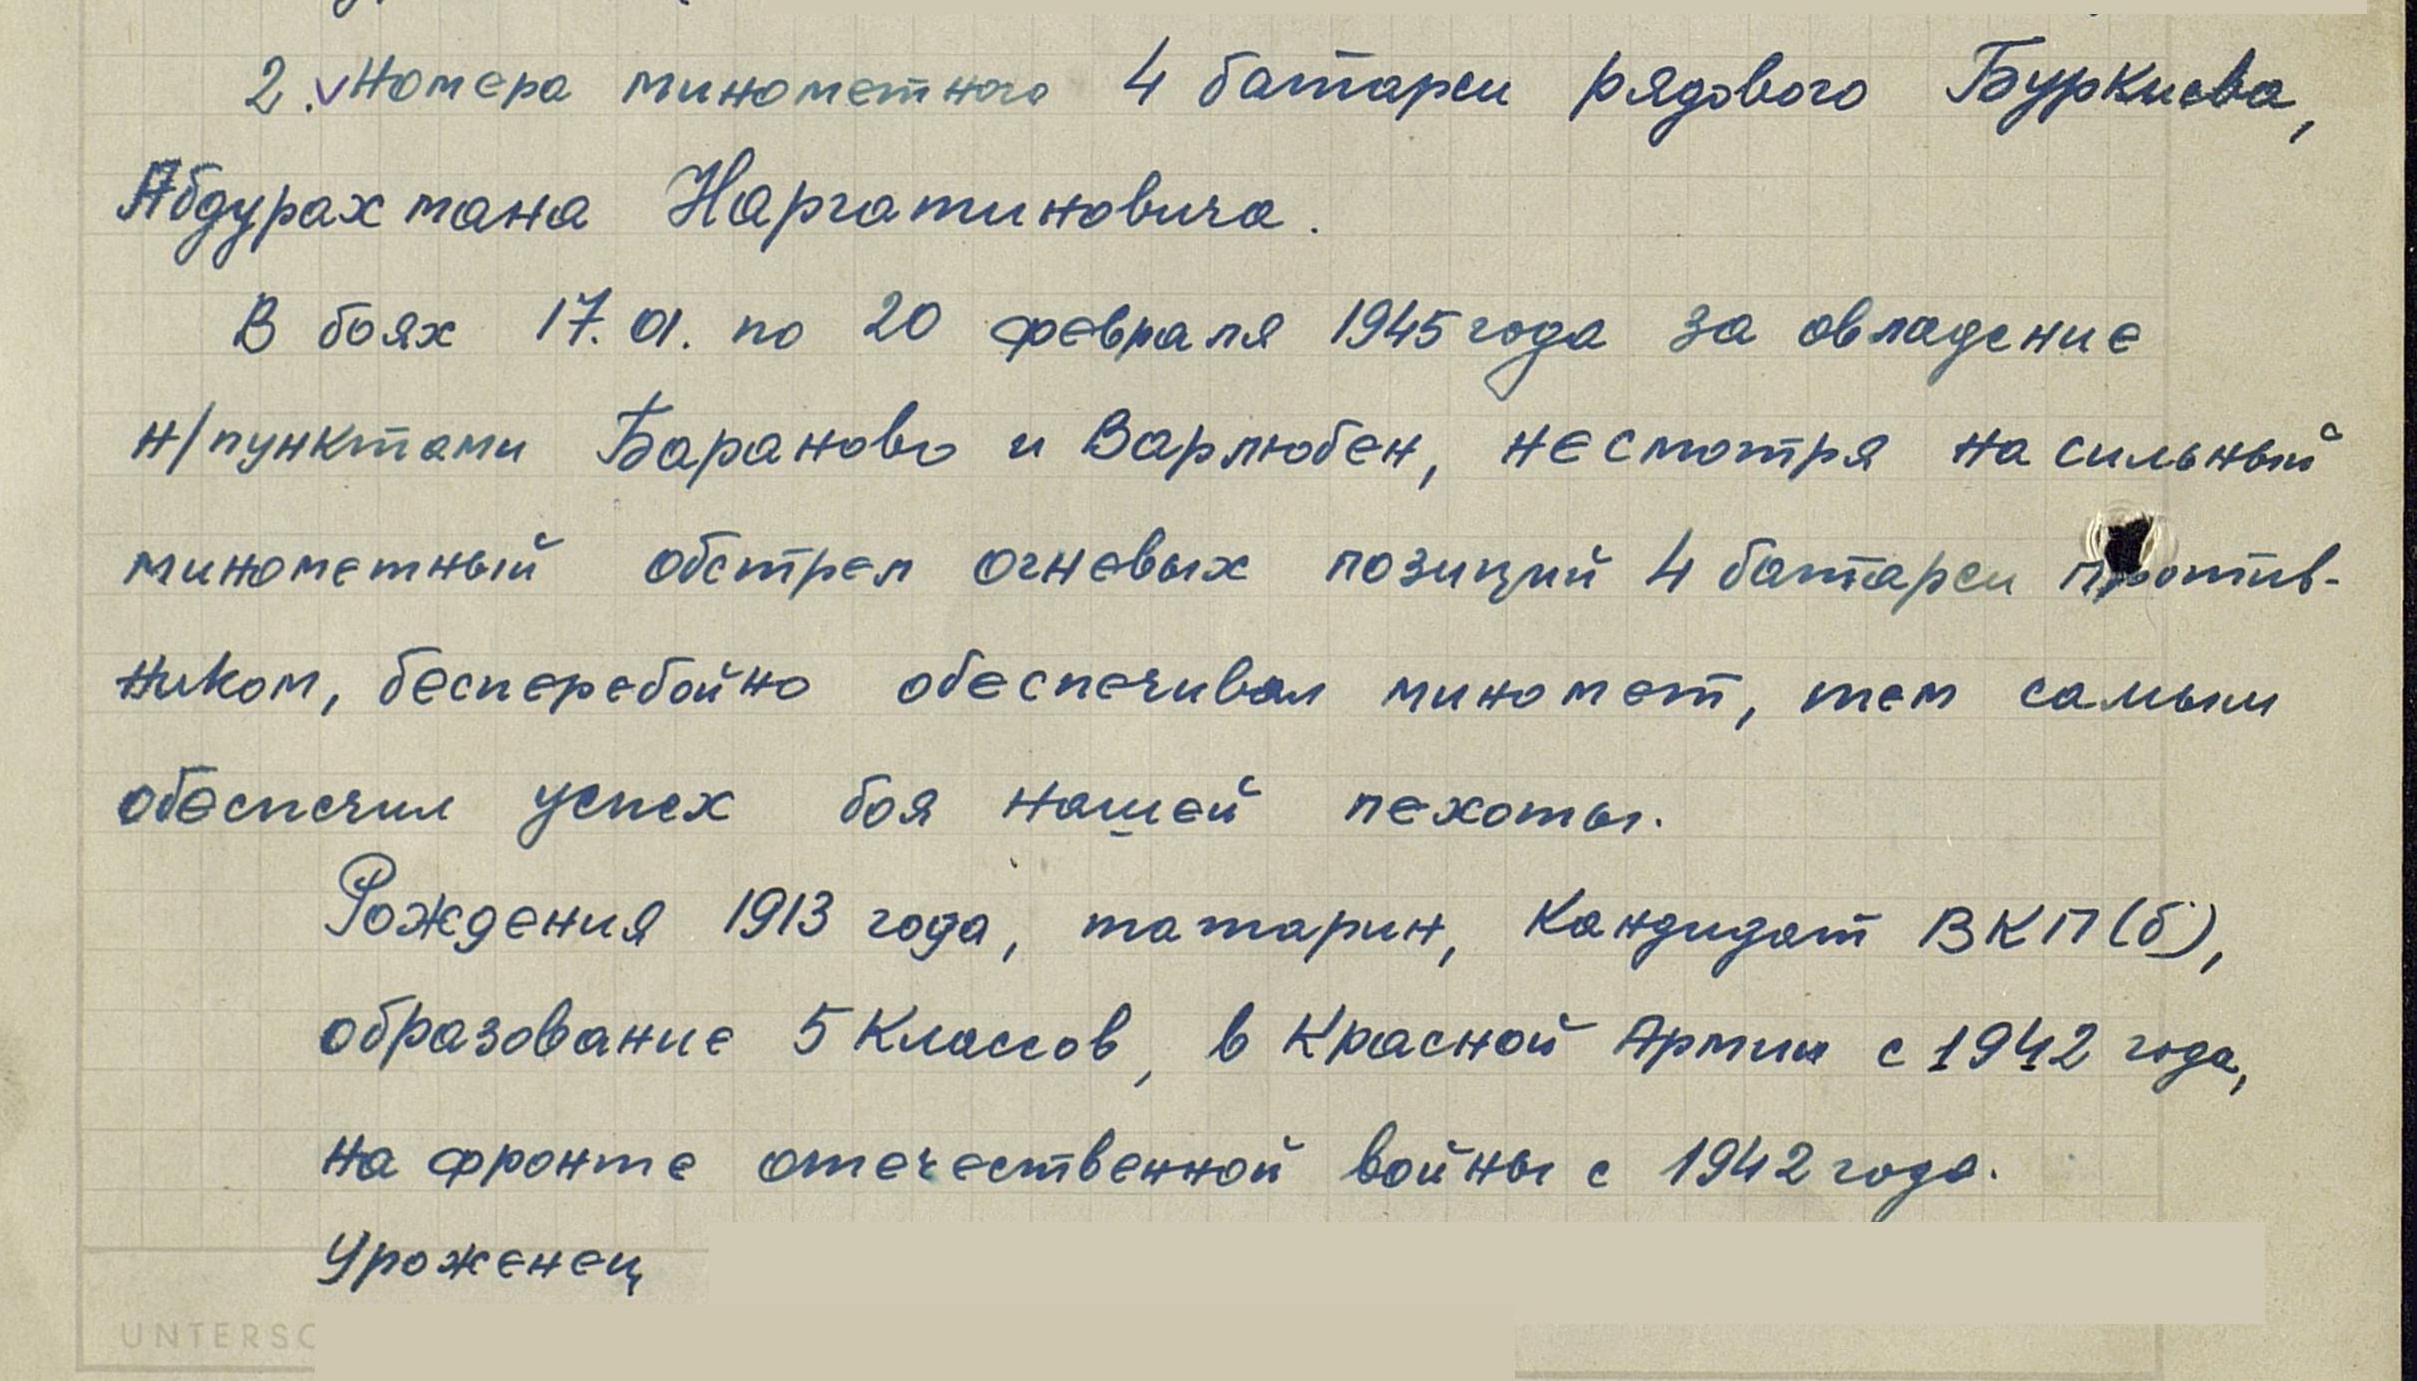 2. Номера минометного 4 батареи рядового Буркиева,
Абдурахмана Наргатиновича.
В боях 17.01. по 20 февраля 1945 года за овладение
н/пунктами Бараново и Варлюбен, несмотря на сильный
минометный обстрел огневых позиций 4 батареи против-
ником, бесперебойно обеспечивал миномет, тем самым
обеспечил успех боя нашей пехоты.
Рождения 1913 года, татарин, кандидат ВКП(б),
образование 5 классов, в Красной Армии с 1942 года,
на фронте отечественной войны с 1942 года.
Уроженец